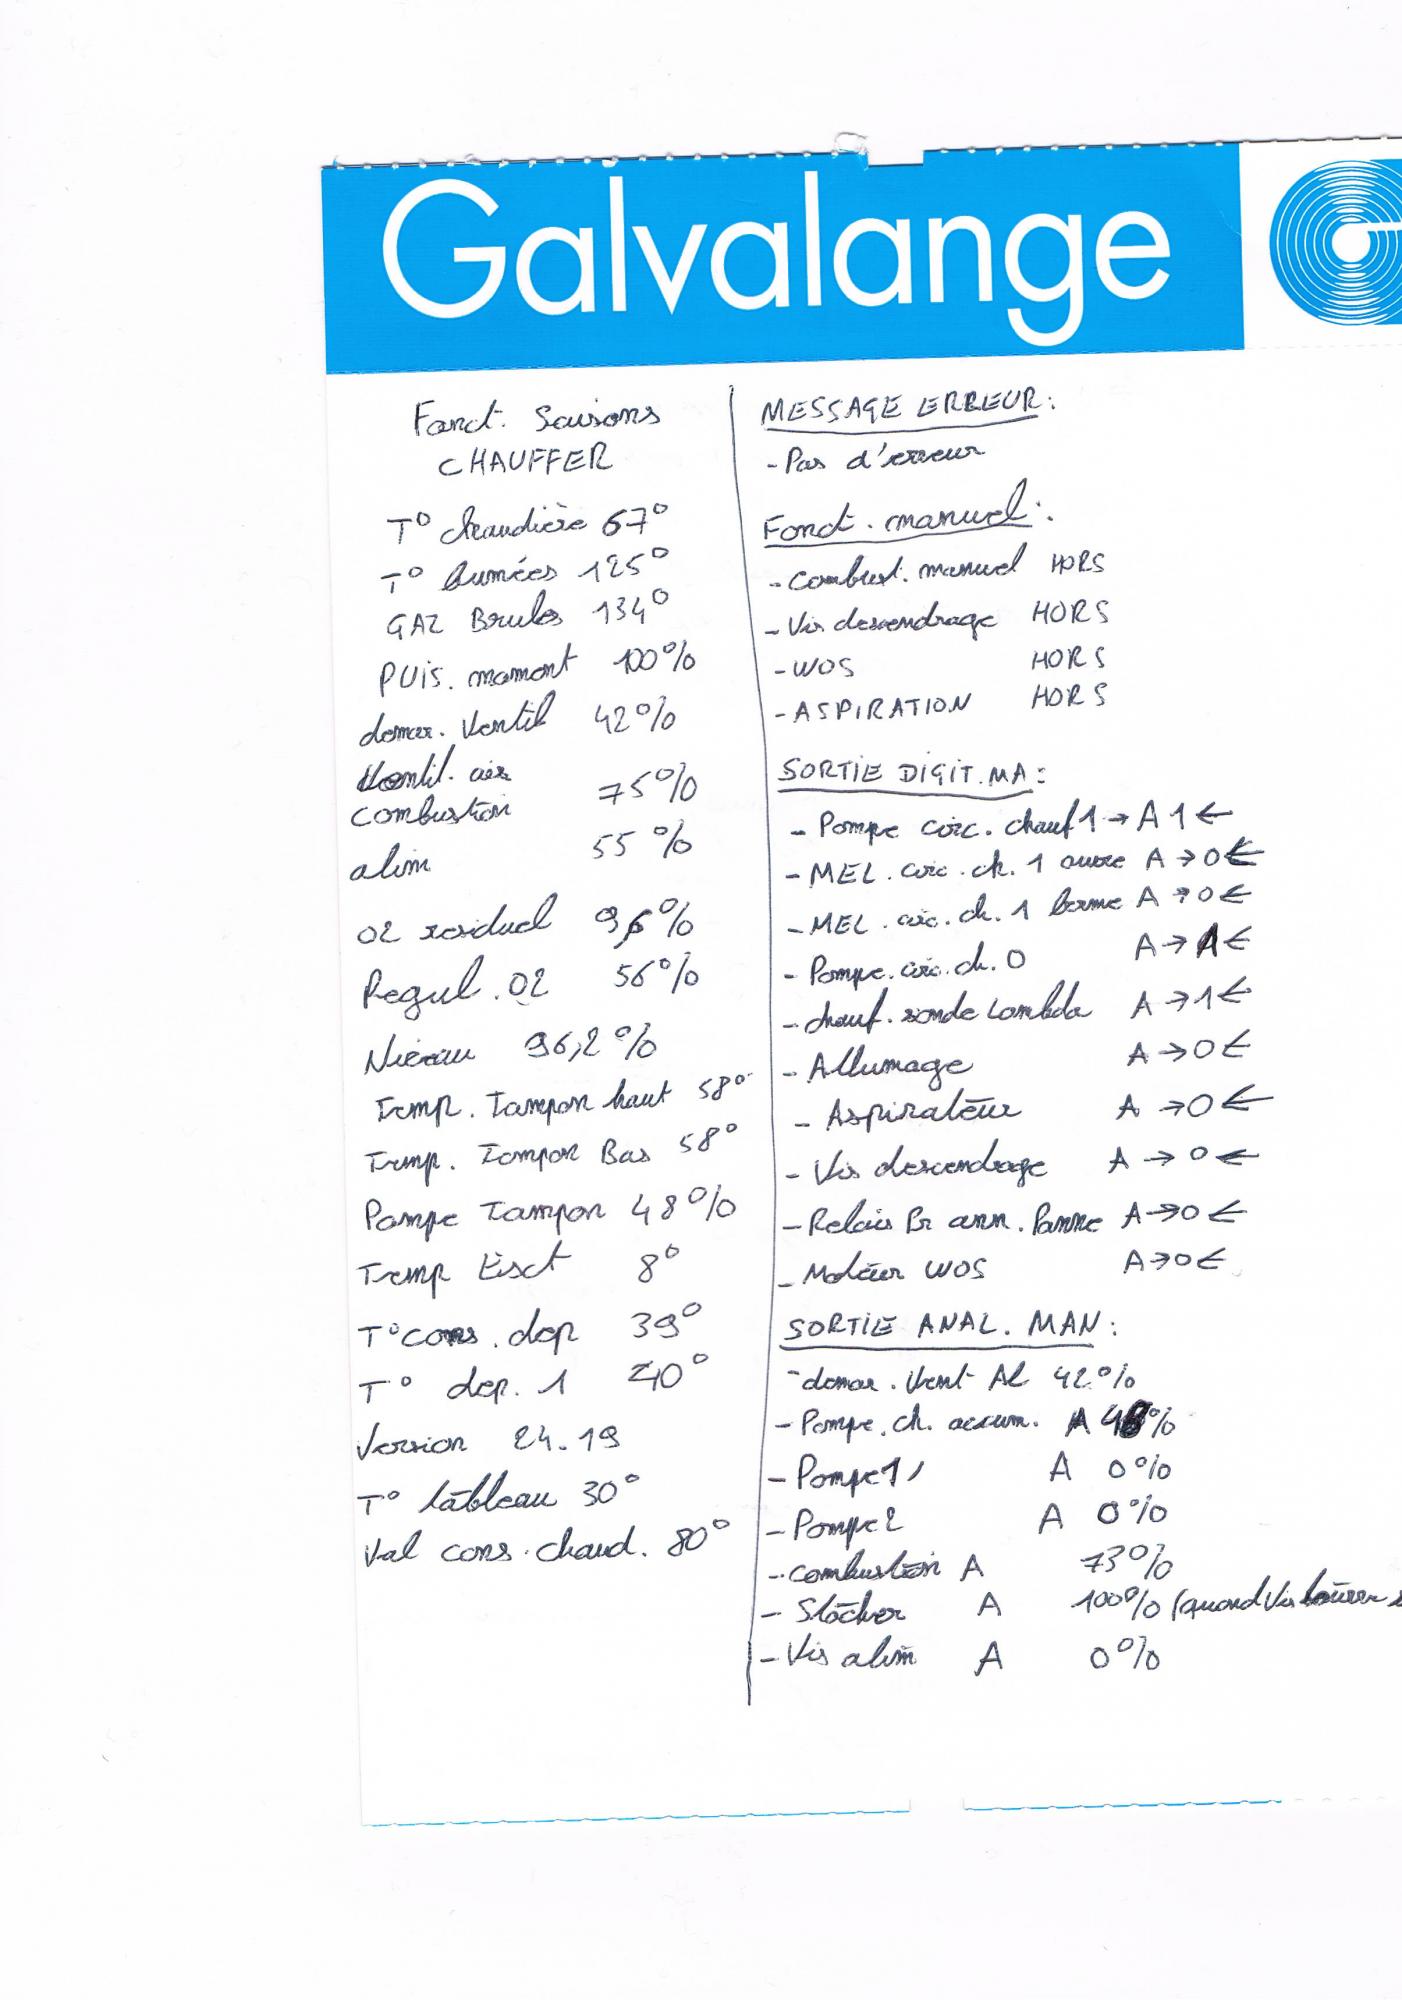 Galvalange
Fonct. Saisons
CHAUFFER
T° chaudière 67°
T° fumées 125°
GAZ Brulés 134°
PUIS. moment 100%
demar. Ventil 42%
Ventil. air
combustion 75%
alim 55%
O2 residuel 9,6%
Regul. O2 56%
Niveau 96,2%
Temp. Tampon haut 58°
Temp. Tampon Bas 58°
Pompe Tampon 48%
Temp Ext 8°
T° cons. dep 39°
T° dep. 1 40°
Version 24.19
T° tableau 30°
Val cons. chaud. 80°
MESSAGE ERREUR:
- Pas d'erreur
Fonct. manuel:
- Combust. manuel HORS
- Vis descendrage HORS
- WOS HORS
- ASPIRATION HORS
SORTIE DIGIT. MA:
- Pompe circ. chauf 1 → A 1 ←
- MEL. circ. ch. 1 ouvre A → 0 ←
- MEL. circ. ch. 1 ferme A → 0 ←
- Pompe. circ. ch. 0 A → 1 ←
- chauf. sonde Lambda A → 1 ←
- Allumage A → 0 ←
- Aspirateur A → 0 ←
- Vis descendrage A → 0 ←
- Relais Pr ann. Panne A → 0 ←
- Moteur WOS A → 0 ←
SORTIE ANAL. MAN:
- demar. Vent Al 42%
- Pompe. ch. accum. A 48%
- Pompe 1 A 0%
- Pompe 2 A 0%
- combustion A 73%
- Stocker A 100% (quand Vis tourne
- Vis alim A 0%